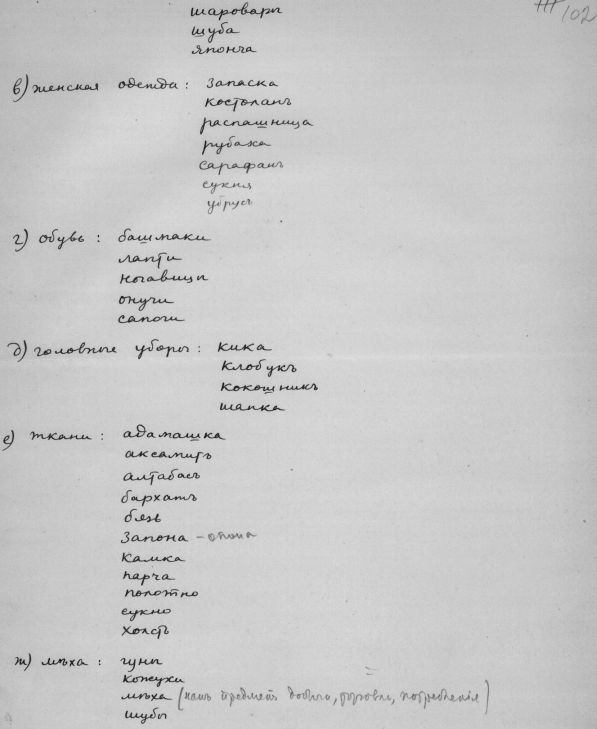 шаровары
шуба
японча
102
в) женская одежда: запаска
костоланъ
распашница
рубаха
сарафанъ
сукня
убрусъ
г) обувь: башмаки
лапти
ногавицы
онучи
сапоги
д) головные уборы: кика
клобукъ
кокошникъ
шапка
е) ткани: адамашка
аксамитъ
алтабасъ
бархатъ
бязь
запона -
камка
парча
полотно
сукно
холстъ
ж) мѣха: гуны
кожухи
мѣха (какъ предметъ добычи, торговли, потребленія)
шубы